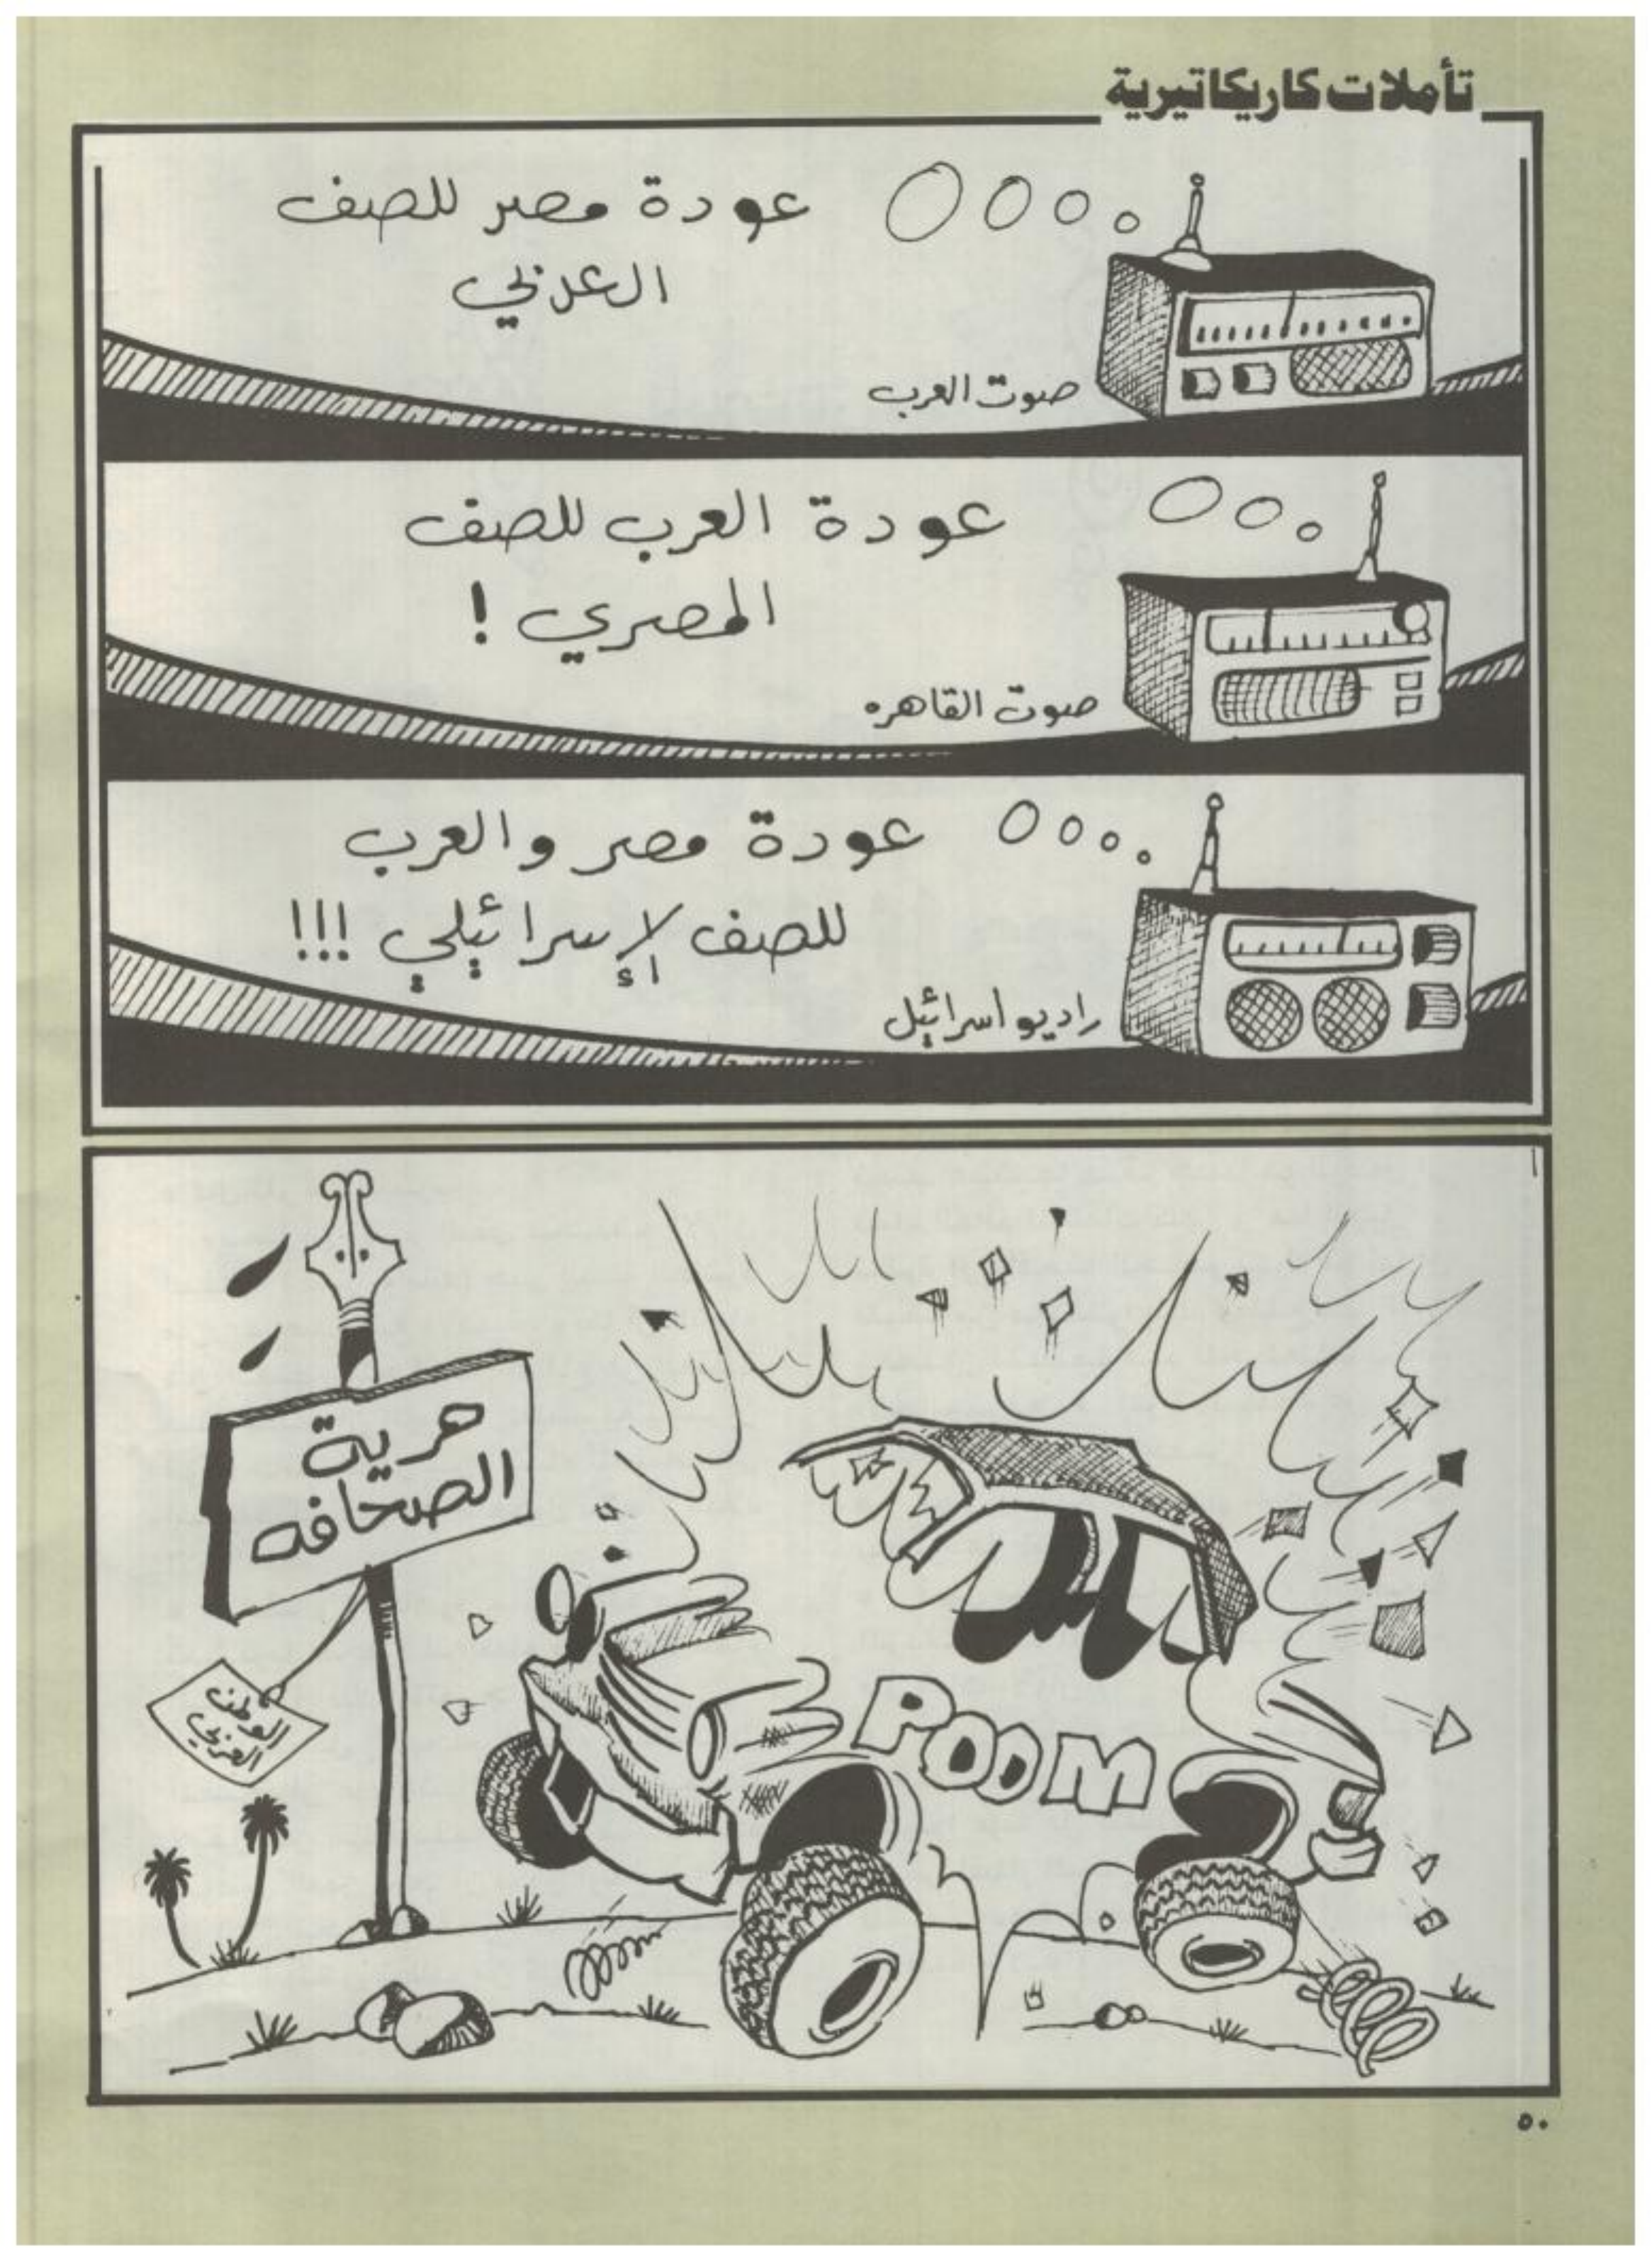 تأملات كاريكاتيرية
عودة مصر للصف
العربي
صوت العرب
عودة العرب للصف
المصري !
صوت القاهره
عودة مصر والعرب
للصف لإسرائيلي !!!
راديو اسرائيل
حرية
الصحافه
الوطن
العربي
POOM
٥٠